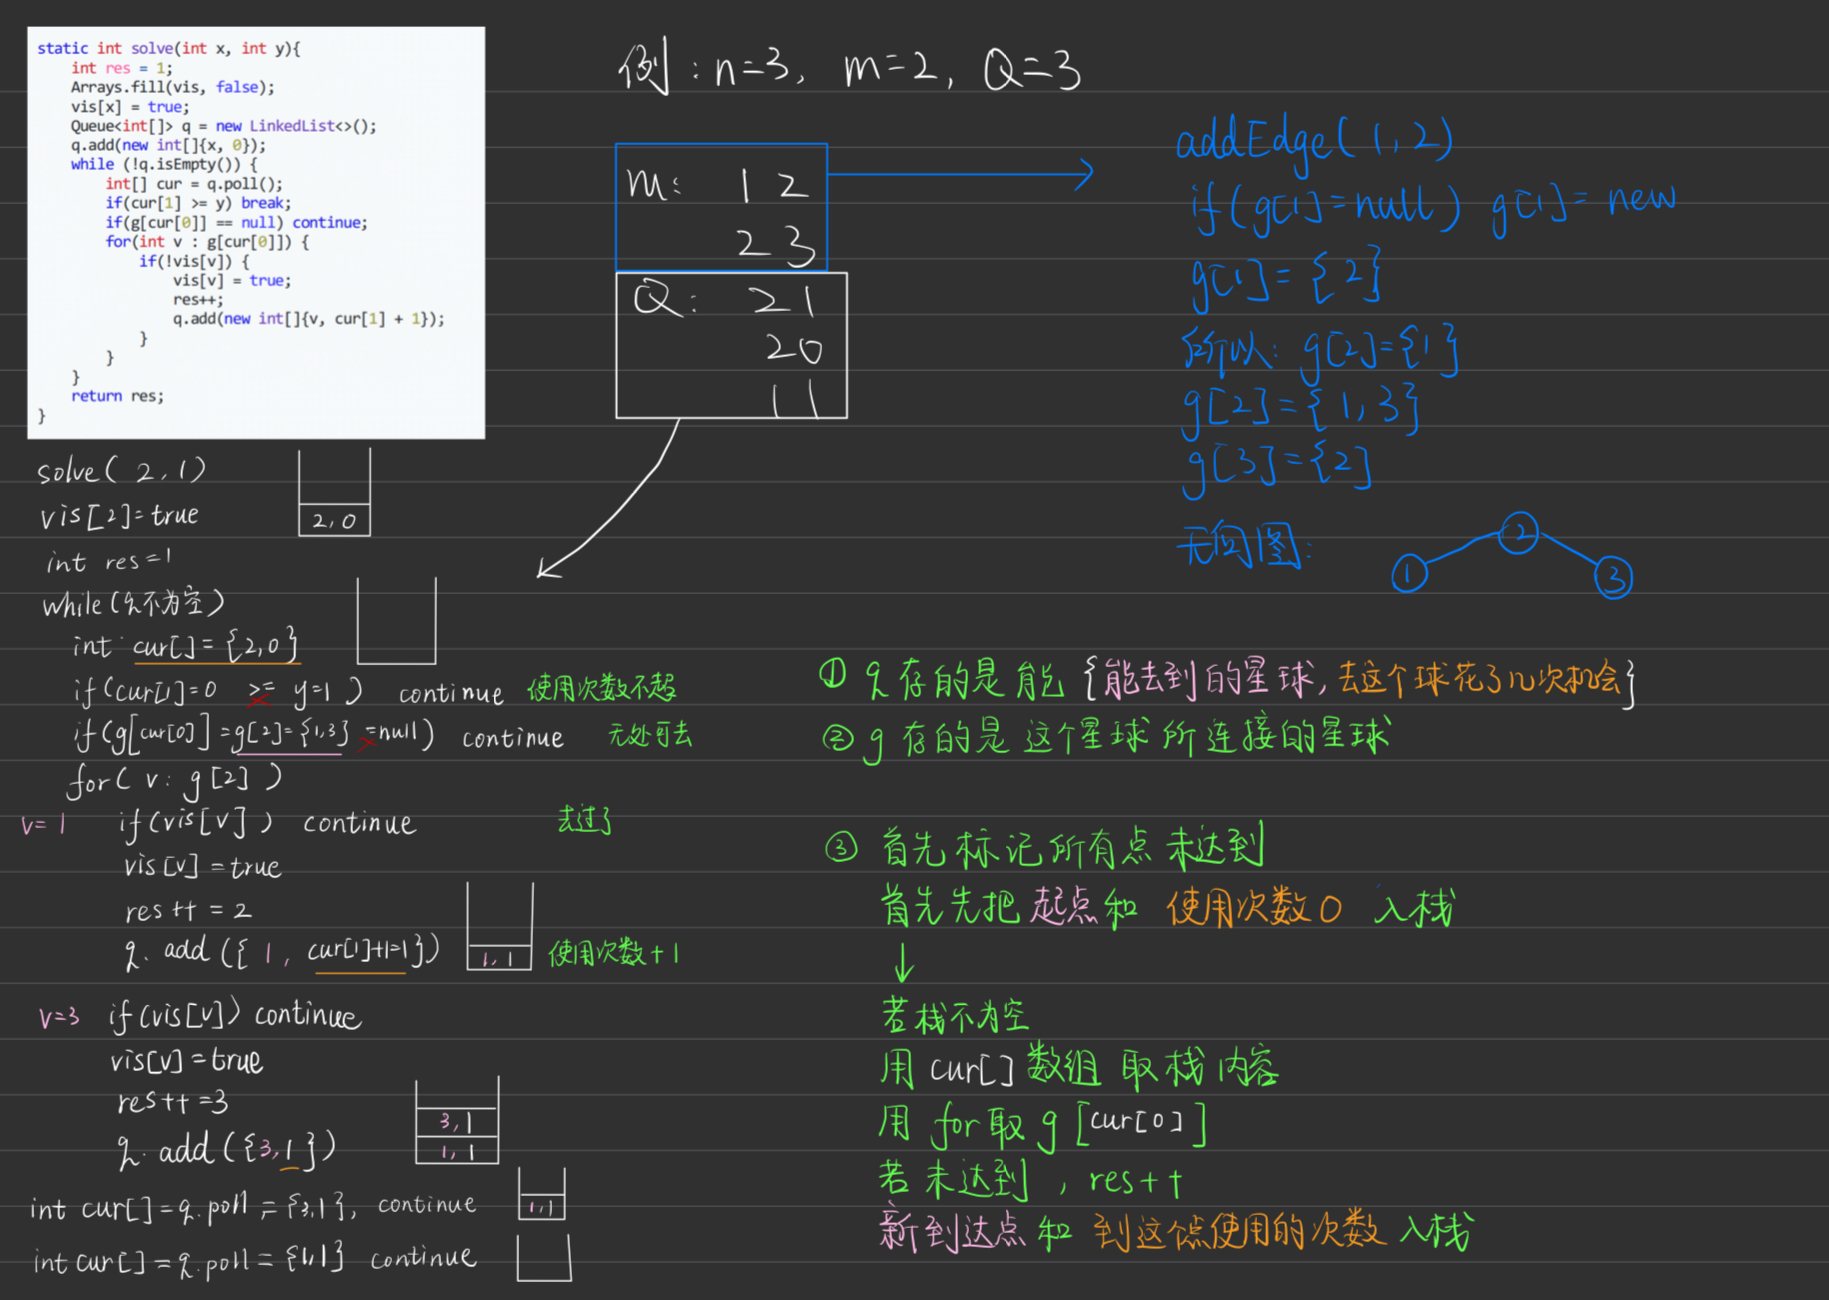 static int solve(int x, int y){
int res = 1;
Arrays.fill(vis, false);
vis[x] = true;
Queue<int[]> q = new LinkedList<>();
q.add(new int[]{x, 0});
while (!q.isEmpty()) {
int[] cur = q.poll();
if(cur[1] >= y) break;
if(g[cur[0]] == null) continue;
for(int v : g[cur[0]]) {
if(!vis[v]) {
vis[v] = true;
res++;
q.add(new int[]{v, cur[1] + 1});
}
}
}
return res;
}
例:n=3, m=2, Q=3
m: 1 2
2 3
Q: 2 1
2 0
1 1
addEdge(1,2)
if(g[1]=null) g[1]= new
g[1]={2}
所以: g[2]={1}
g[2]={1,3}
g[3]={2}
无向图:
1
2
3
solve(2,1)
vis[2]=true
2,0
int res=1
while(q不为空)
int cur[]={2,0}
if(cur[1]=0 >= y=1) continue 使用次数不超
if(g[cur[0]]=g[2]={1,3} =null) continue 无处可去
for(v: g[2])
v=1 if(vis[v]) continue 去过了
vis[v]=true
res++=2
q.add({1, cur[1]+1=1}) 1,1 使用次数+1
v=3 if(vis[v]) continue
vis[v]=true
res++=3
q.add({3,1})
3,1
1,1
int cur[]=q.poll={3,1}, continue 1,1
int cur[]=q.poll={1,1} continue
① q存的是能{能去到的星球,去这个球花了几次机会}
② g存的是这个星球所连接的星球
③ 首先标记所有点未达到
首先先把起点和使用次数0入栈
↓
若栈不为空
用cur[]数组取栈内容
用for取g[cur[0]]
若未达到, res++
新到达点和到这个点使用的次数入栈